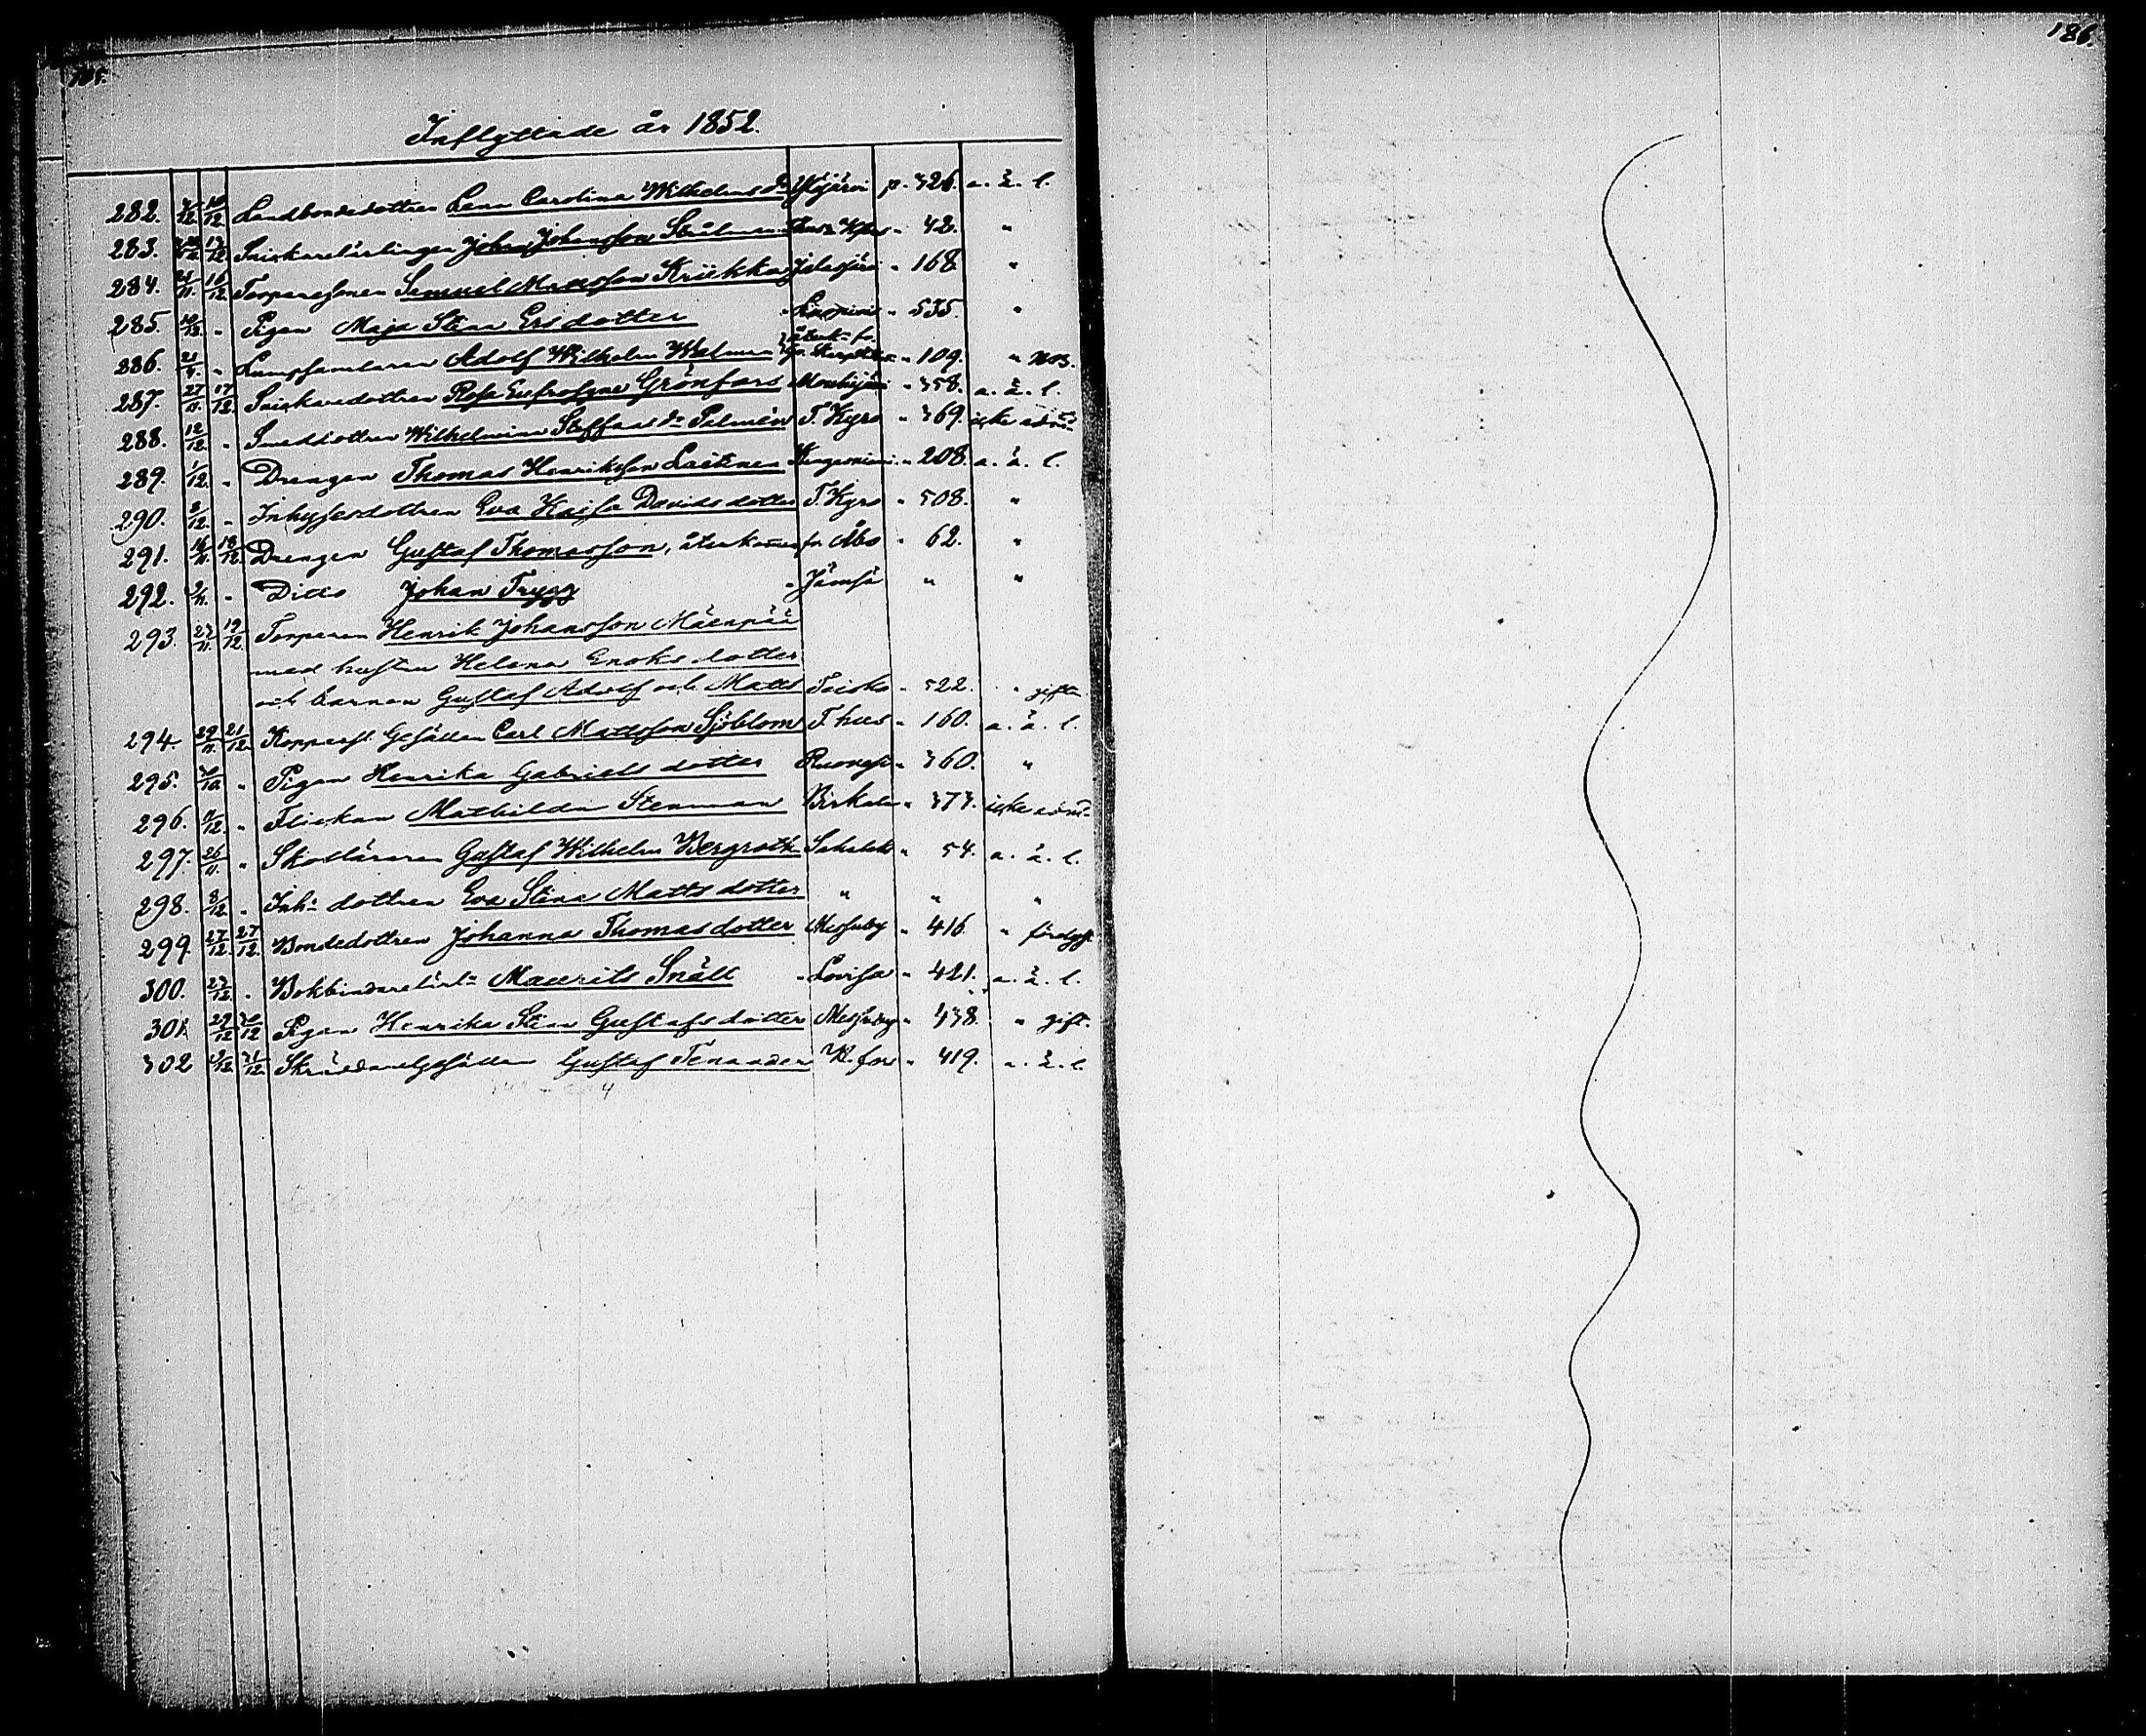 185.
186.
Inflyttade år 1852.
282. 10/12 Landbondedottren Lena Carolina Wilhelmsdr Ylöjärvi p. 326. a. ä. l.
283. 13/12 Snickarelärlingen Johan Johansson Stålman " 42. "
284. 25/11 16/12 Torparesonen Samuel Mattsson Kriikka Jalasjärvi " 168. "
285. 10/12 " Pigan Maja Stina Ersdotter " 535. "
286. " Lumpsamlaren Adolf Wilhelm Widman återk. fr. " 109. "
287. 27/11 17/12 Snickaredottren Rosa Eufrosyne Grönfors Mouhijärvi " 358. a. ä. l.
288. 12/12 " Smeddottren Wilhelmina Steffansdr Palmén T. Kyro " 369. icke adm.
289. 1/12 " Drengen Thomas Henriksson Laitinen Kangasniemi " 208. a. ä. l.
290. 2/12 " Inhysesdottren Eva Kaisa Davidsdotter T. Kyro " 508. "
291. 16/11 18/12 Drengen Gustaf Thomasson, återkommen fr. Åbo " 62. "
292. " Ditto Johan Trygg " Jämsä " "
293. 23/11 19/12 Torparen Henrik Johansson Mäenpää
med hustru Helena Enoksdotter
och barnen Gustaf Adolf och Matts Teisko " 522. " gifta
294. 29/11 21/12 Kopparsl. Gesällen Carl Mattsson Sjöblom T. hus " 160. a. ä. l.
295. " Pigan Henrika Gabrielsdotter Ruovesi " 360. "
296. " Flickan Mathilda Stenman Birkala " 373. icke adm.
297. 26/11 " Skolläraren Gustaf Wilhelm Bergroth Sahalak. " 54. a. ä. l.
298. 8/12 " Inh. dottren Eva Stina Mattsdotter " " "
299. 27/12 27/12 Bondedottren Johanna Thomasdotter Messuby " 416. "
300. 23/12 " Bokbindarelärl. Maurits Snäll " Lovisa " 421. a. ä. l.
301. 29/12 30/12 Pigan Henrika Stina Gustafsdotter Messuby " 438. " gift.
302 31/12 Skräddarelgesällen Gustaf Tenander H.fors " 419. a. ä. l.